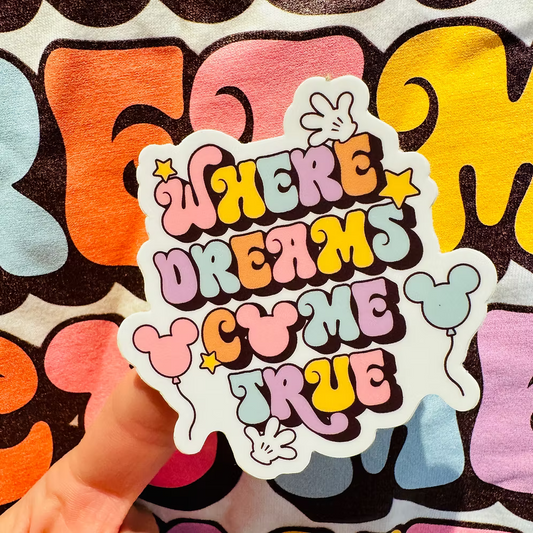 WHERE
DREAMS
COME
TRUE